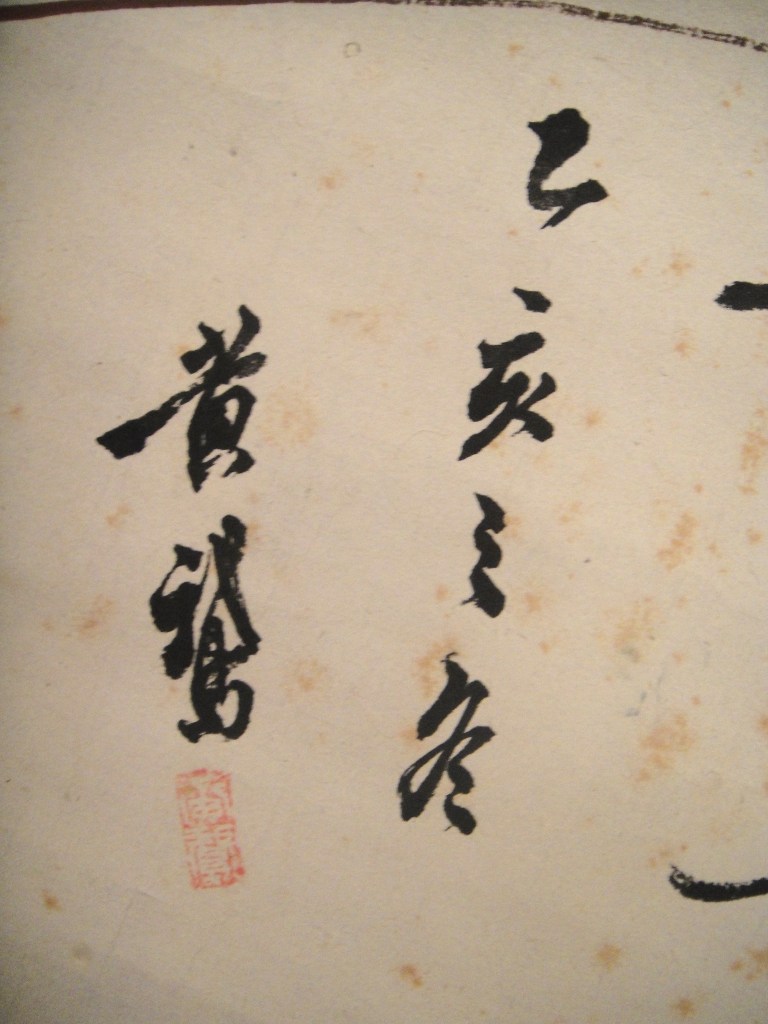 乙亥之冬
黄鵞